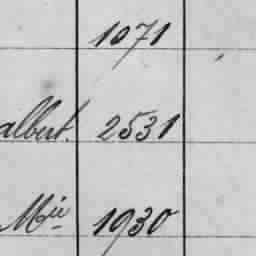 1071
albert. 2531
Mie 1930